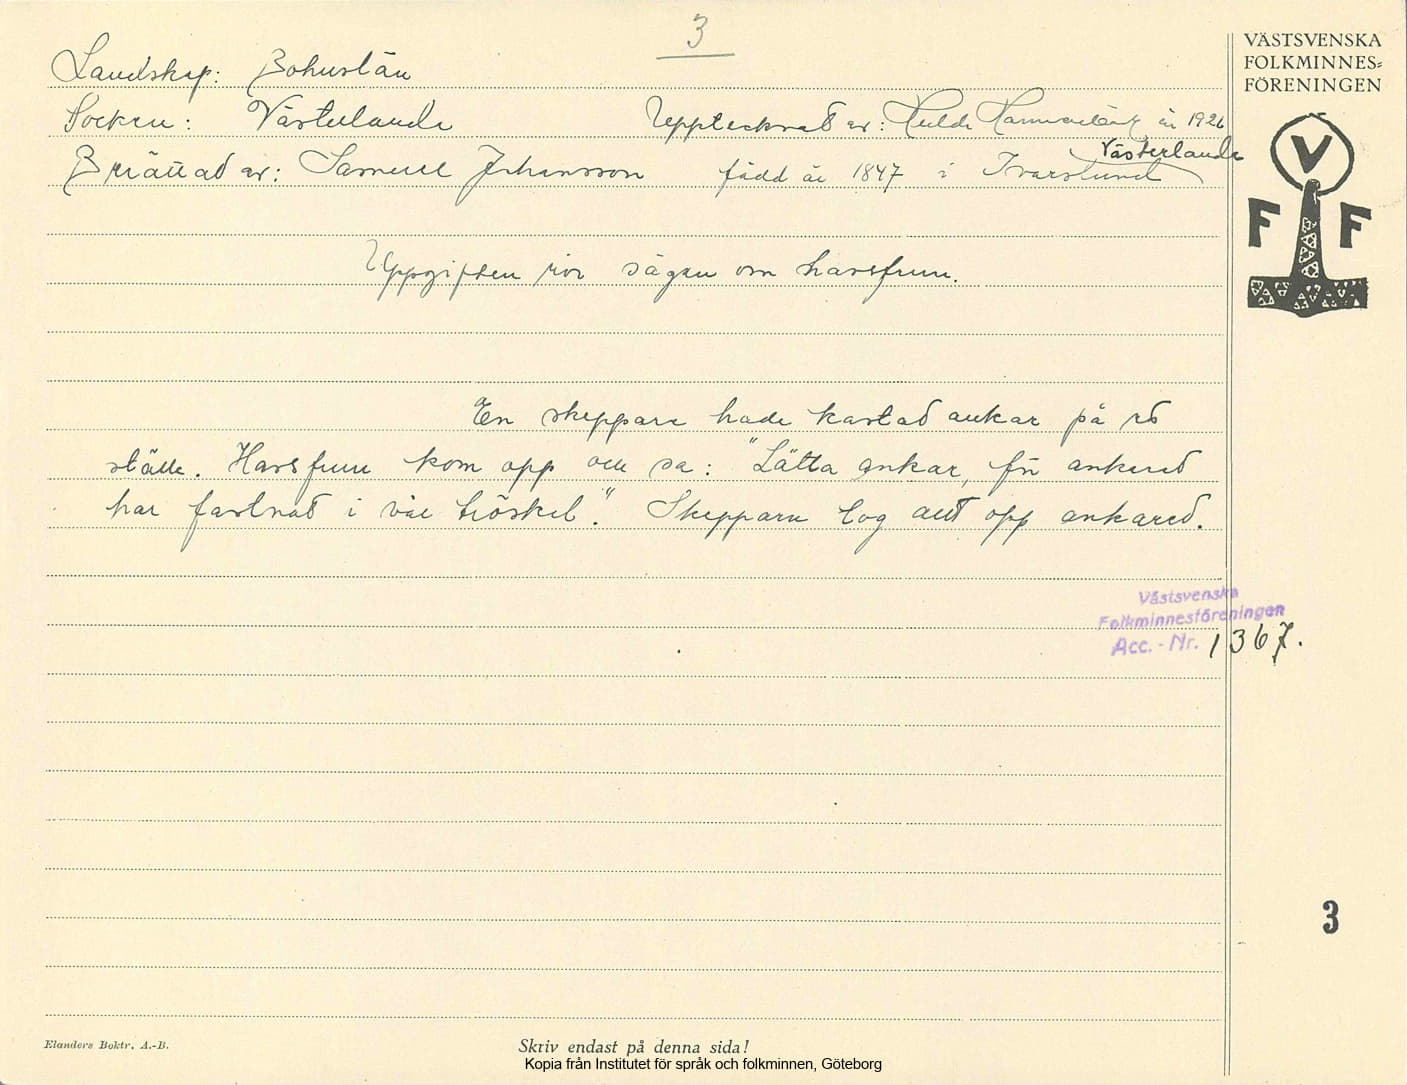 3
VÄSTSVENSKA
FOLKMINNES=
FÖRENINGEN
Landskap: Bohuslän
Socken: Västerlanda Upptecknat av: Hulda Hammarbäck år 1926
Västerlanda
Berättad av: Samuel Johansson född år 1847 i Ivarslund
V
F F
Uppgiften rör sägen om havsfrun.
En skeppare hade kastad ankar på ed
ställe. Havsfrun kom opp och sa: "Lätta ankar, för ankared
har fastnat i vår tröskel." Skepparn tog autt opp ankared.
Västsvenska
Folkminnesföreningen
Acc. - Nr. 1367.
3
Elanders Boktr. A.-B.
Skriv endast på denna sida!
Kopia från Institutet för språk och folkminnen, Göteborg